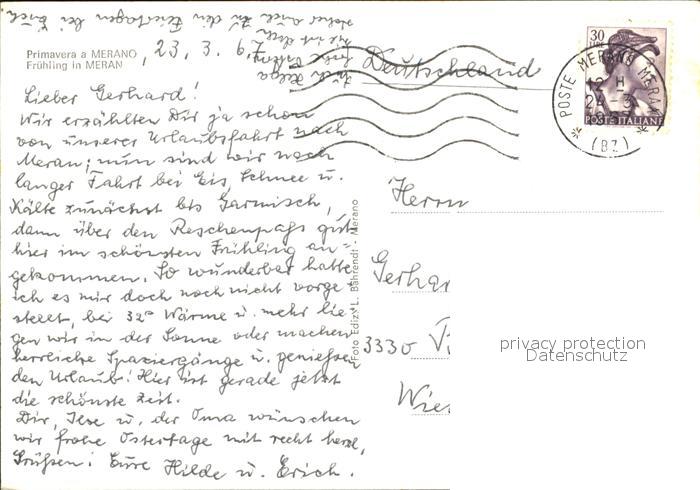 Primavera a MERANO
Frühling in MERAN
, 23. 3. 67
Lieber Gerhard!
Wir erzählten Dir ja schon
von unserer Urlaubsfahrt nach
Meran; nun sind wir nach
langer Fahrt bei Eis, Schnee u.
Kälte zunächst bis Garmisch,
dann über den Reschenpaß gut
hier im schönsten Frühling an=
gekommen. So wunderbar hatte
ich es mir doch noch nicht vorge=
stellt, bei 32° Wärme u. mehr lie=
gen wir in der Sonne oder machen
herrliche Spaziergänge u. genießen
den Urlaub! Hier ist gerade jetzt
die schönste Zeit.
Dir, Ilse u. der Oma wünschen
wir frohe Ostertage mit recht herzl.
Grüßen! Eure Hilde u. Erich.
auch zu den Feiertagen bei Euch
Deutschland
30
LIRE
POSTE ITALIANE
POSTE MERANO MERAN
12 H
24 3
(BZ)
Foto Edizi L. Bährendt - Merano
Herrn
Gerhar
3330
Wie
privacy protection
Datenschutz